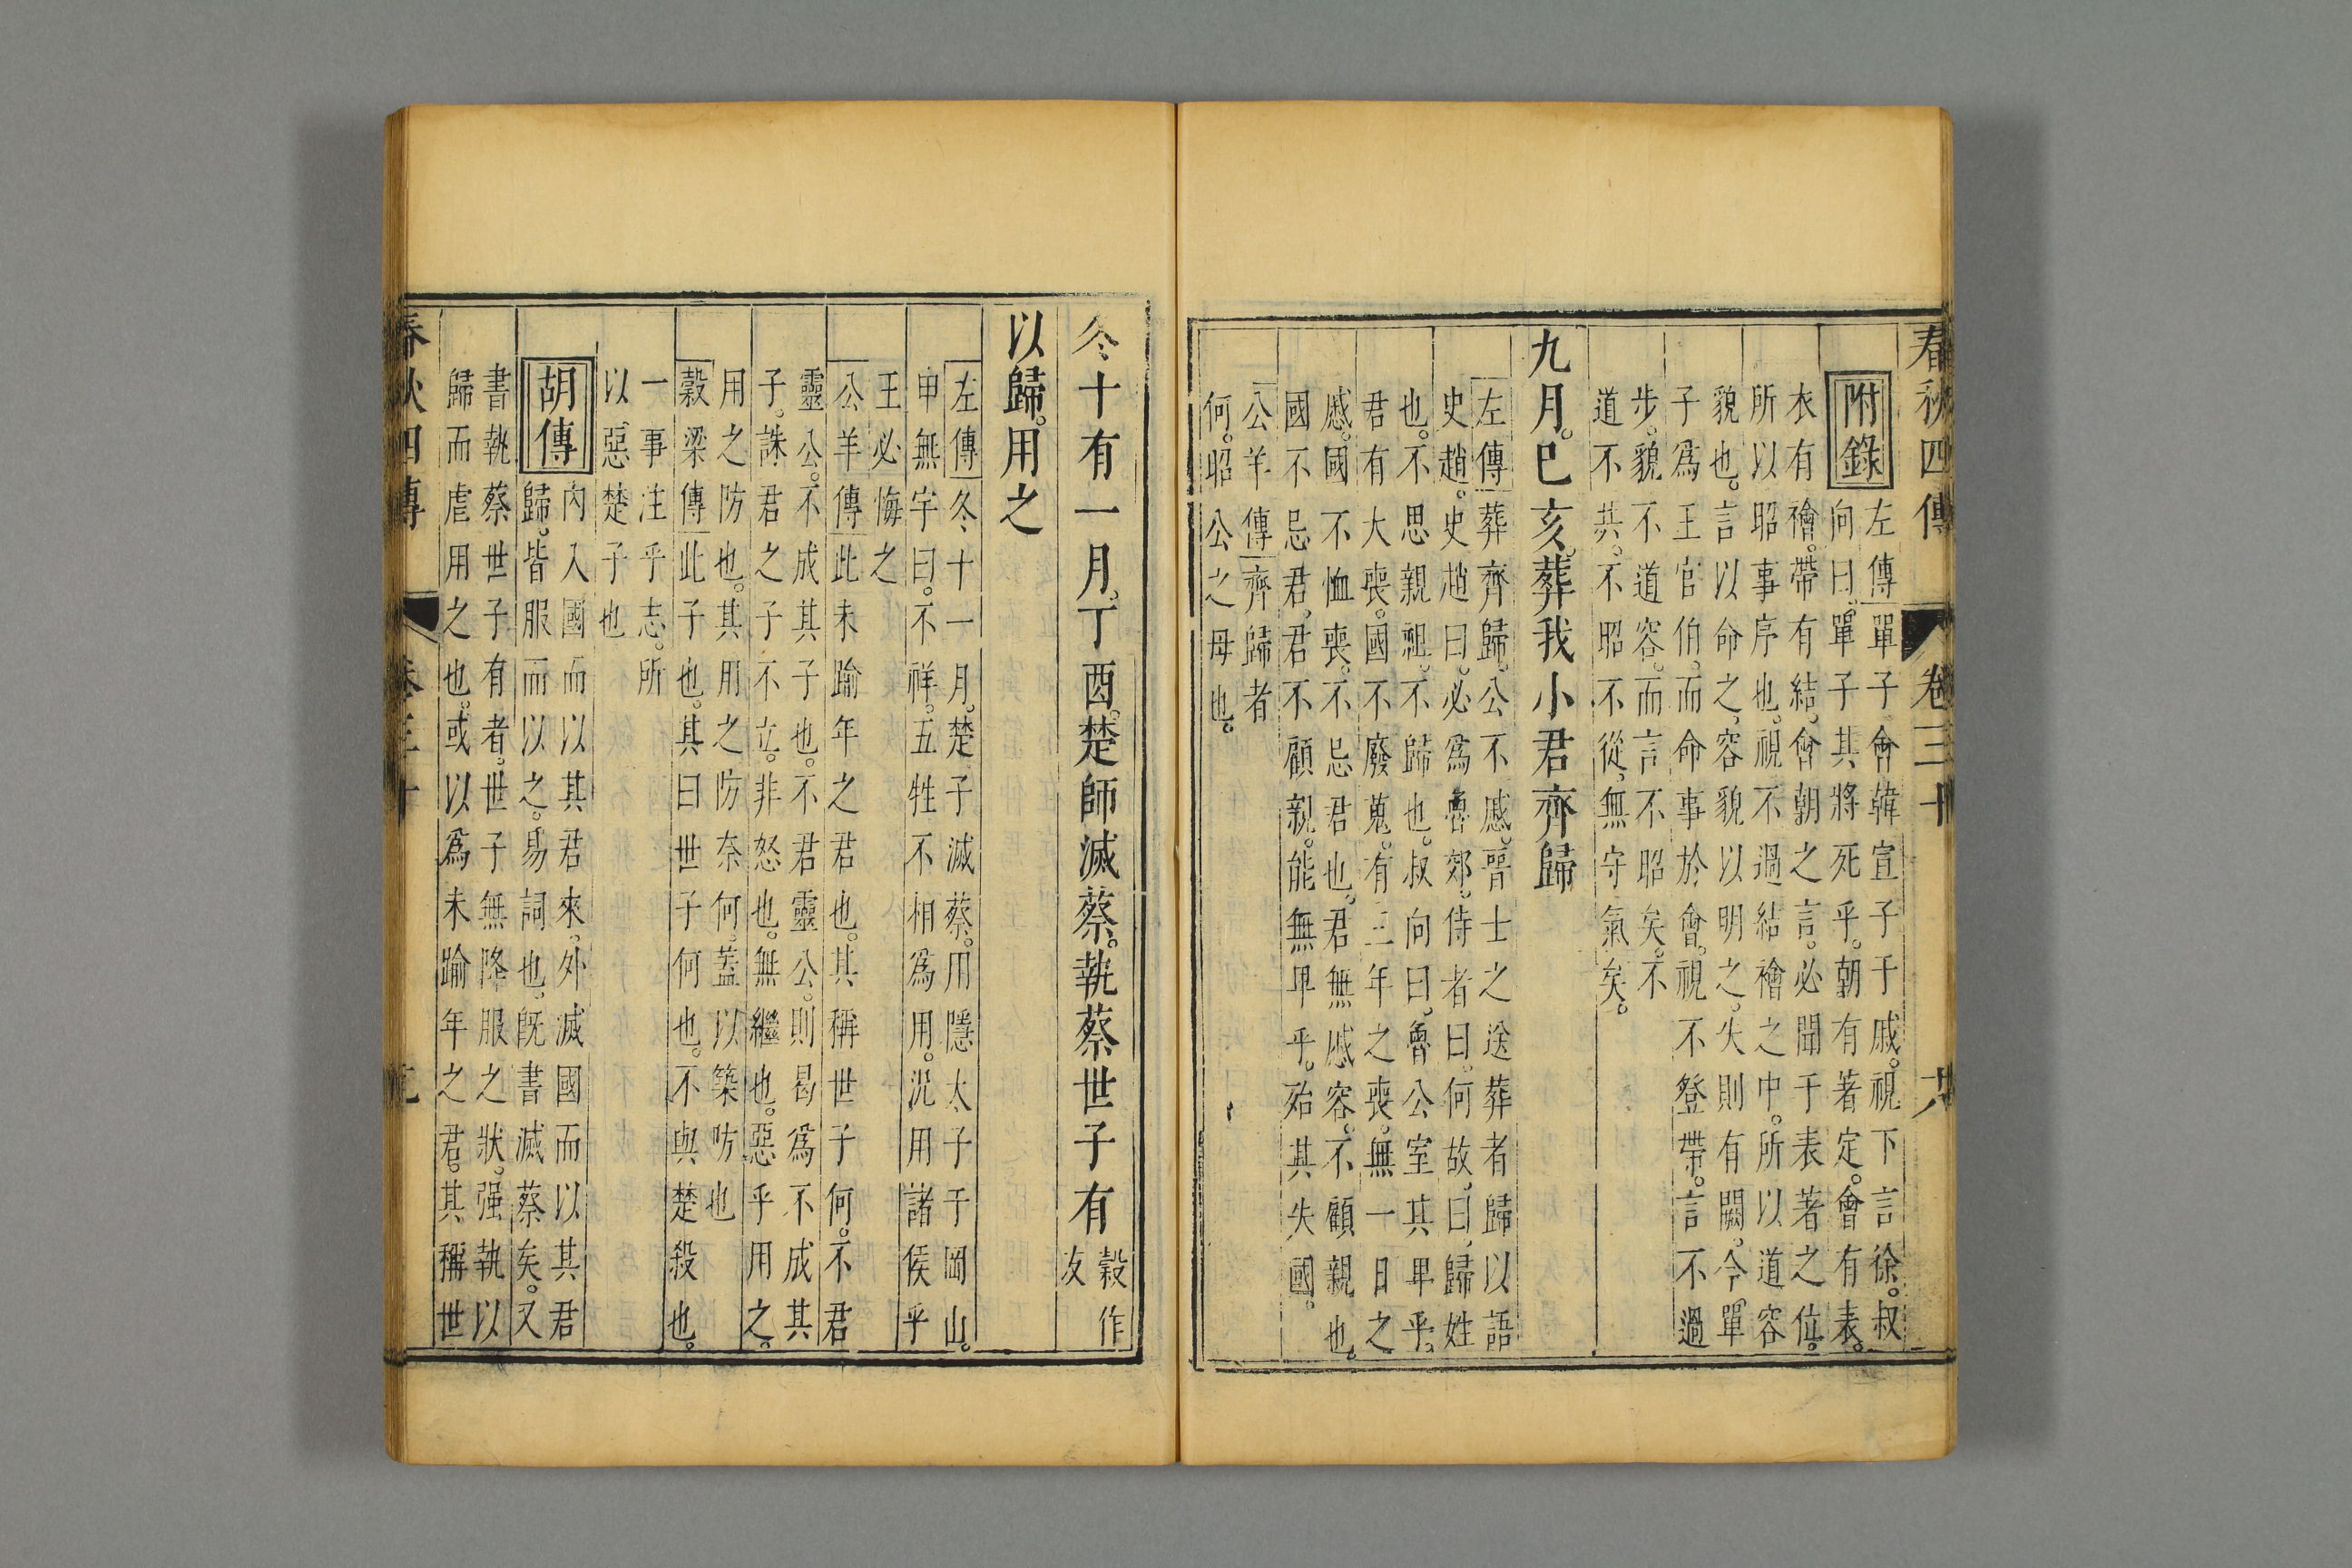 春秋四傳 卷三十 十八
附錄
左傳單子會韓宣子于戚。視下言徐。叔
向曰。單子其將死乎。朝有著定。會有表。
衣有襘。帶有結。會朝之言。必聞于表著之位。
所以昭事序也。視不過結襘之中。所以道容
貌也。言以命之。容貌以明之。失則有闕。今單
子爲王官伯。而命事於會。視不登帶。言不過
步。貌不道容。而言不昭矣。不
道不共。不昭不從。無守氣矣。
九月。巳亥。葬我小君齊歸
左傳葬齊歸。公不慼。晉士之送葬者歸以語
史趙。史趙曰。必爲魯郊。侍者曰。何故。曰。歸姓
也。不思親。祖。不歸也。叔向曰。魯公室其卑乎。
君有大喪。國不廢蒐。有三年之喪。無一日之
慼。國不恤喪。不忌君也。君無慼容。不顧親也。
國不忌君。君不顧親。能無卑乎。殆其失國。
公羊傳齊歸者
何。昭公之母也。
冬十有一月。丁酉。楚師滅蔡。執蔡世子有
穀作
友
以歸。用之
左傳冬十一月。楚子滅蔡。用隱太子于岡山。
申無宇曰。不祥。五牲不相爲用。況用諸侯乎
王必悔之
公羊傳此未踰年之君也。其稱世子何。不君
靈公。不成其子也。不君靈公。則曷爲不成其
子。誅君之子不立。非怒也。無繼也。惡乎用之。
用之防也。其用之防奈何。蓋以築防也
穀梁傳此子也。其曰世子何也。不與楚殺也。
一事注乎志。所
以惡楚子也
胡傳
內入國而以其君來。外滅國而以其君
歸。皆服而以之。易詞也。旣書滅蔡矣。又
書執蔡世子有者。世子無降服之狀。强執以
歸而虐用之也。或以爲未踰年之君。其稱世
春秋四傳 卷三十